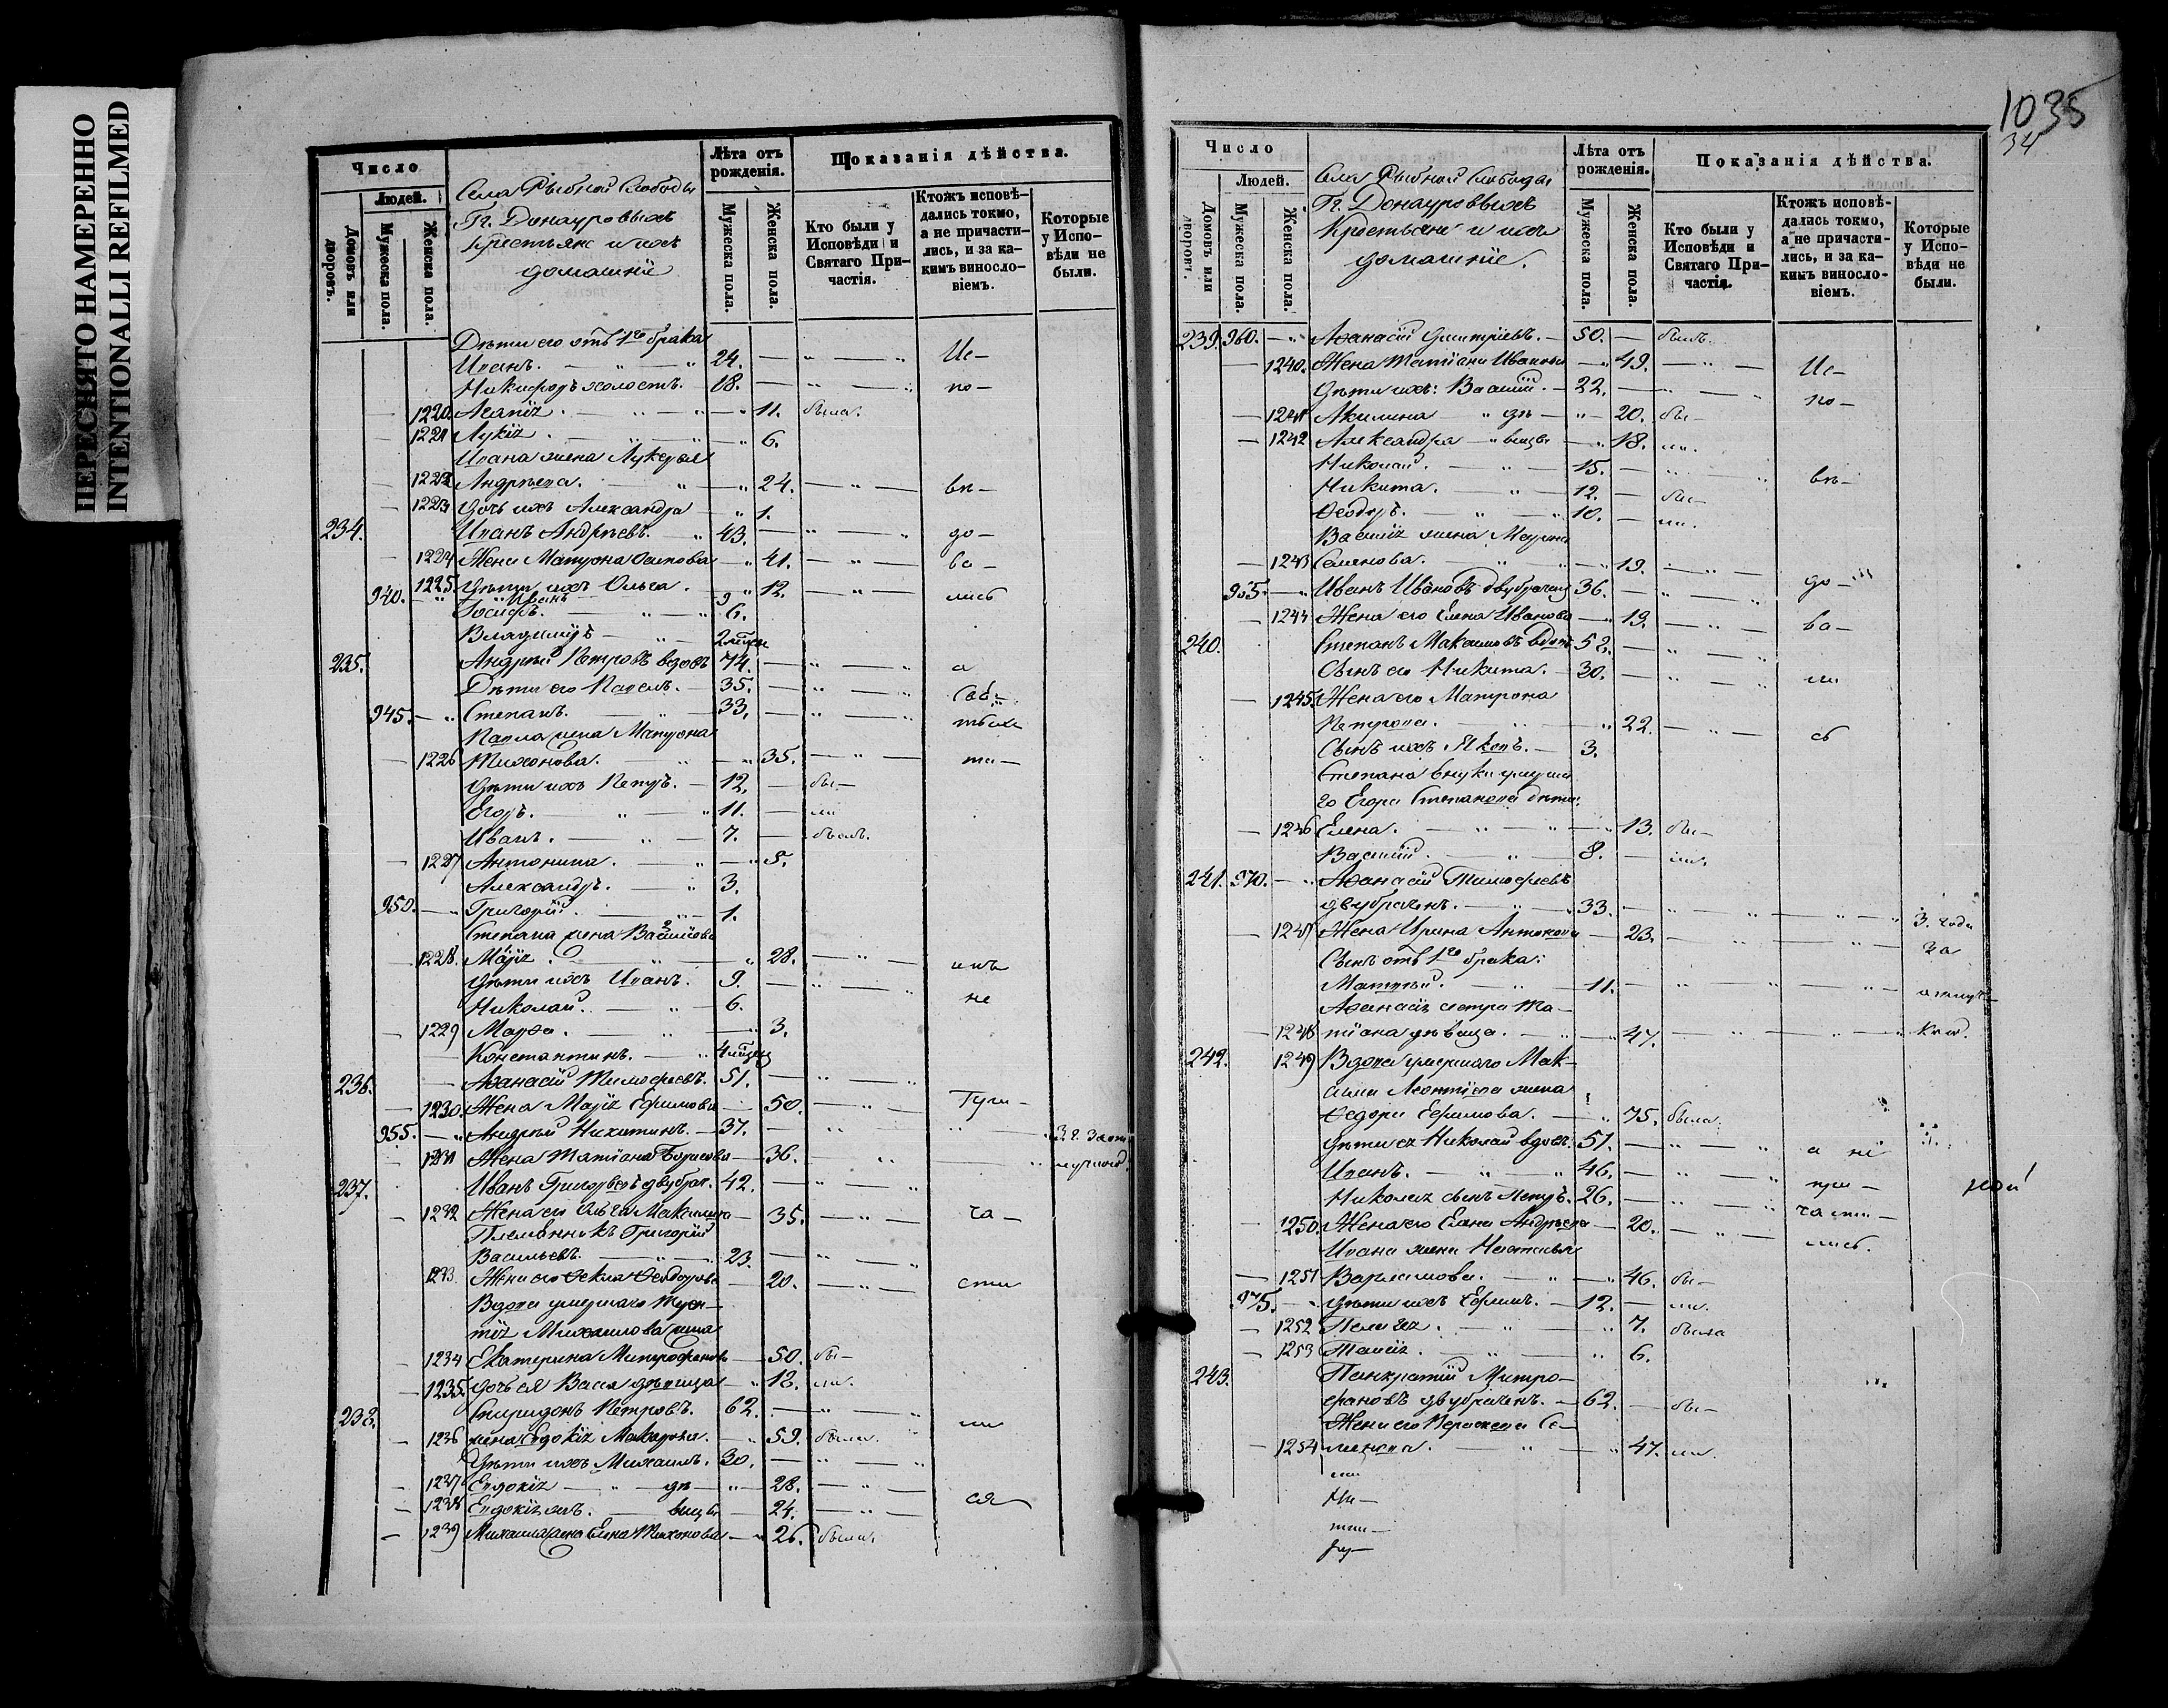 ПЕРЕСНЯТО НАМЕРЕННО
INTENTIONALLI REFILMED
Число
Людей.
Домовъ или дворовъ.
Мужеска пола.
Женска пола.
Села Рыбной Слободы
Гг. Донауровыхъ
Крестьяне и ихъ
домашніе
Лѣта отъ рожденія.
Мужеска пола.
Женска пола.
Показанія дѣйства.
Кто были у Исповѣди и Святаго Причастія.
Ктожъ исповѣ-
дались токмо,
а не причасти-
лись, и за ка-
кимъ винosло-
віемъ.
Которые
у Испо-
вѣди не
были.
Дѣти его отъ 1го брака
Иванъ. 24. Ис-
Никифоръ холостъ. 18. по-
1220. Агапія. 11. была.
1221 Лукія. 6.
Ивана жена Лукерья
1222 Андреева. 24. вѣ-
1223 Дочь ихъ Александра 1.
234. Иванъ Андреевъ. 43. до-
1224 Жена Матрона Осипова 41. ва-
1225. Дѣти ихъ Ольга. 12. лись
940. Иванъ 9
Іосифъ. 6.
Владимиръ 2
235. Андрей Петровъ вдовъ 74. а
Дѣти его Павелъ. 35.
945. Степанъ. 33.
Павла жена Матрона
1226 Тихонова. 35.
Дѣти ихъ Петръ. 12. бы-
Егоръ. 11. ли
Иванъ. 7. былъ.
1227 Антонина. 5.
Александръ. 3.
950. Григорій. 1.
Степана жена Васильева
1228. Марія. 28.
Дѣти ихъ Иванъ. 9. не
Николай. 6.
1229 Марѳа. 3.
Константинъ. 4
236. Аѳанасій Тимофеевъ. 51.
1230. Жена Марія Ефимова 50. При-
955. Андрей Никитинъ. 37.
1231 Жена Татіана Борисова 36.
237. Иванъ Григорьевъ двубрач. 42.
1232 Жена его Ольга Максимова 35. ча-
Племянникъ Григорій
Васильевъ. 23.
1233. Жена его Ѳекла Ѳеодорова 20. сти
Вдова умершаго Терен-
тія Михаилова жена
1234 Екатерина Митрофанова 50. бы-
1235. Дочь ея Васса дѣвица 18. ли.
238. Спиридонъ Петровъ. 62. ли
1236 Жена Евдокія Макарова. 59. была.
Дѣти ихъ Михаилъ. 30.
1237 Евдокія дѣ- 28.
1238 Евдокія вицы 24. ся
1239 Михаила жена Елена Тихонова 26. была.
1035
34
Число
Людей.
Домовъ или дворовъ.
Мужеска пола.
Женска пола.
Села Рыбной Слободы
Гг. Донауровыхъ
Крестьяне и ихъ
домашніе.
Лѣта отъ рожденія.
Мужеска пола.
Женска пола.
Показанія дѣйства.
Кто были у Исповѣди и Святаго Причастія.
Ктожъ исповѣ-
дались токмо,
а не причасти-
лись, и за ка-
кимъ винosло-
віемъ.
Которые
у Испо-
вѣди не
были.
239. 960. Аѳанасій Дмитріевъ. 50. былъ.
1240. Жена Татіана Иванова 49. Ис-
Дѣти ихъ: Василій. 22. по-
1241 Акилина дѣ- 20. бы-
1242 Александра вицы 18. ли.
Николай. 15. вѣ-
Никита. 12. бы-
Ѳеодоръ. 10. ли.
Василія жена Марина
1243 Семенова. 19. до-
965. Иванъ Ивановъ двубрачен 36.
1244 Жена его Елена Иванова 19. ва-
240. Степанъ Максимовъ вдовъ 52.
Сынъ его Никита. 30. ли
1245. Жена его Матрона
Петрова. 22. сь
Сынъ ихъ Яковъ. 3.
Степана внуки умерша-
го Егора Степанова дѣти:
1246 Елена. 13. бы-
Василій. 8. ли.
241. 970. Аѳанасій Тимофеевъ
двубраченъ. 33. 3. года
1247 Жена Ирина Антонова 23. за
Сынъ отъ 1го брака:
Матвей. 11. отлуч-
Аѳанасія сестра Та-
1248 тіана дѣвица. 47. кою.
242. 1249 Вдова умершаго Мак-
сима Леонтіева жена
Ѳедора Ефимова. 75. была.
Дѣти ея Николай вдовъ. 51. а не
Иванъ. 46. при-
Николая сынъ Петръ. 26. части-
1250. Жена его Елена Андреева 20. лись.
Ивана жена Наталья
1251 Варламова. 46. бы-
975. Дѣти ихъ Ефимъ. 12. ли.
1252 Пелагія. 7. была
1253 Таисія. 6.
243. Панкратій Митро-
фановъ двубраченъ. 62. бы-
Жена его Васса Се-
1254 менова. 47. ли.